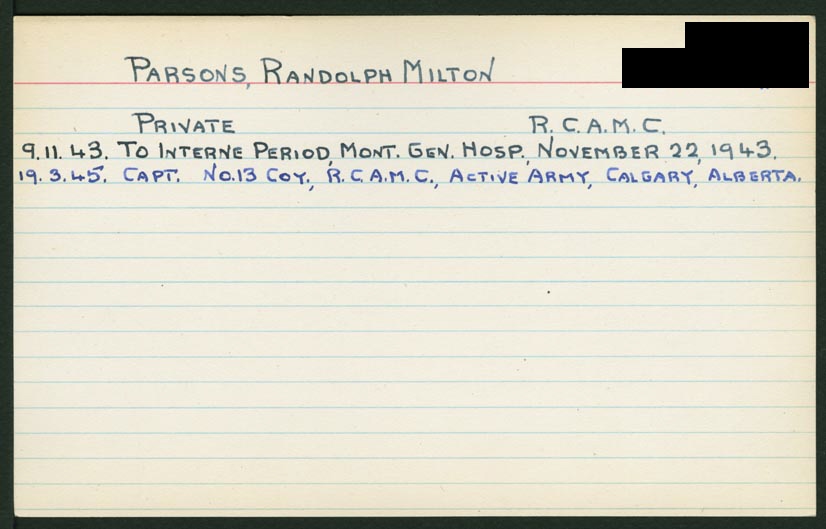 PARSONS, RANDOLPH MILTON
PRIVATE R.C.A.M.C.
9.11.43. TO INTERNE PERIOD, MONT. GEN. HOSP., NOVEMBER 22, 1943.
19.3.45. CAPT. NO.13 COY., R.C.A.M.C., ACTIVE ARMY, CALGARY, ALBERTA.